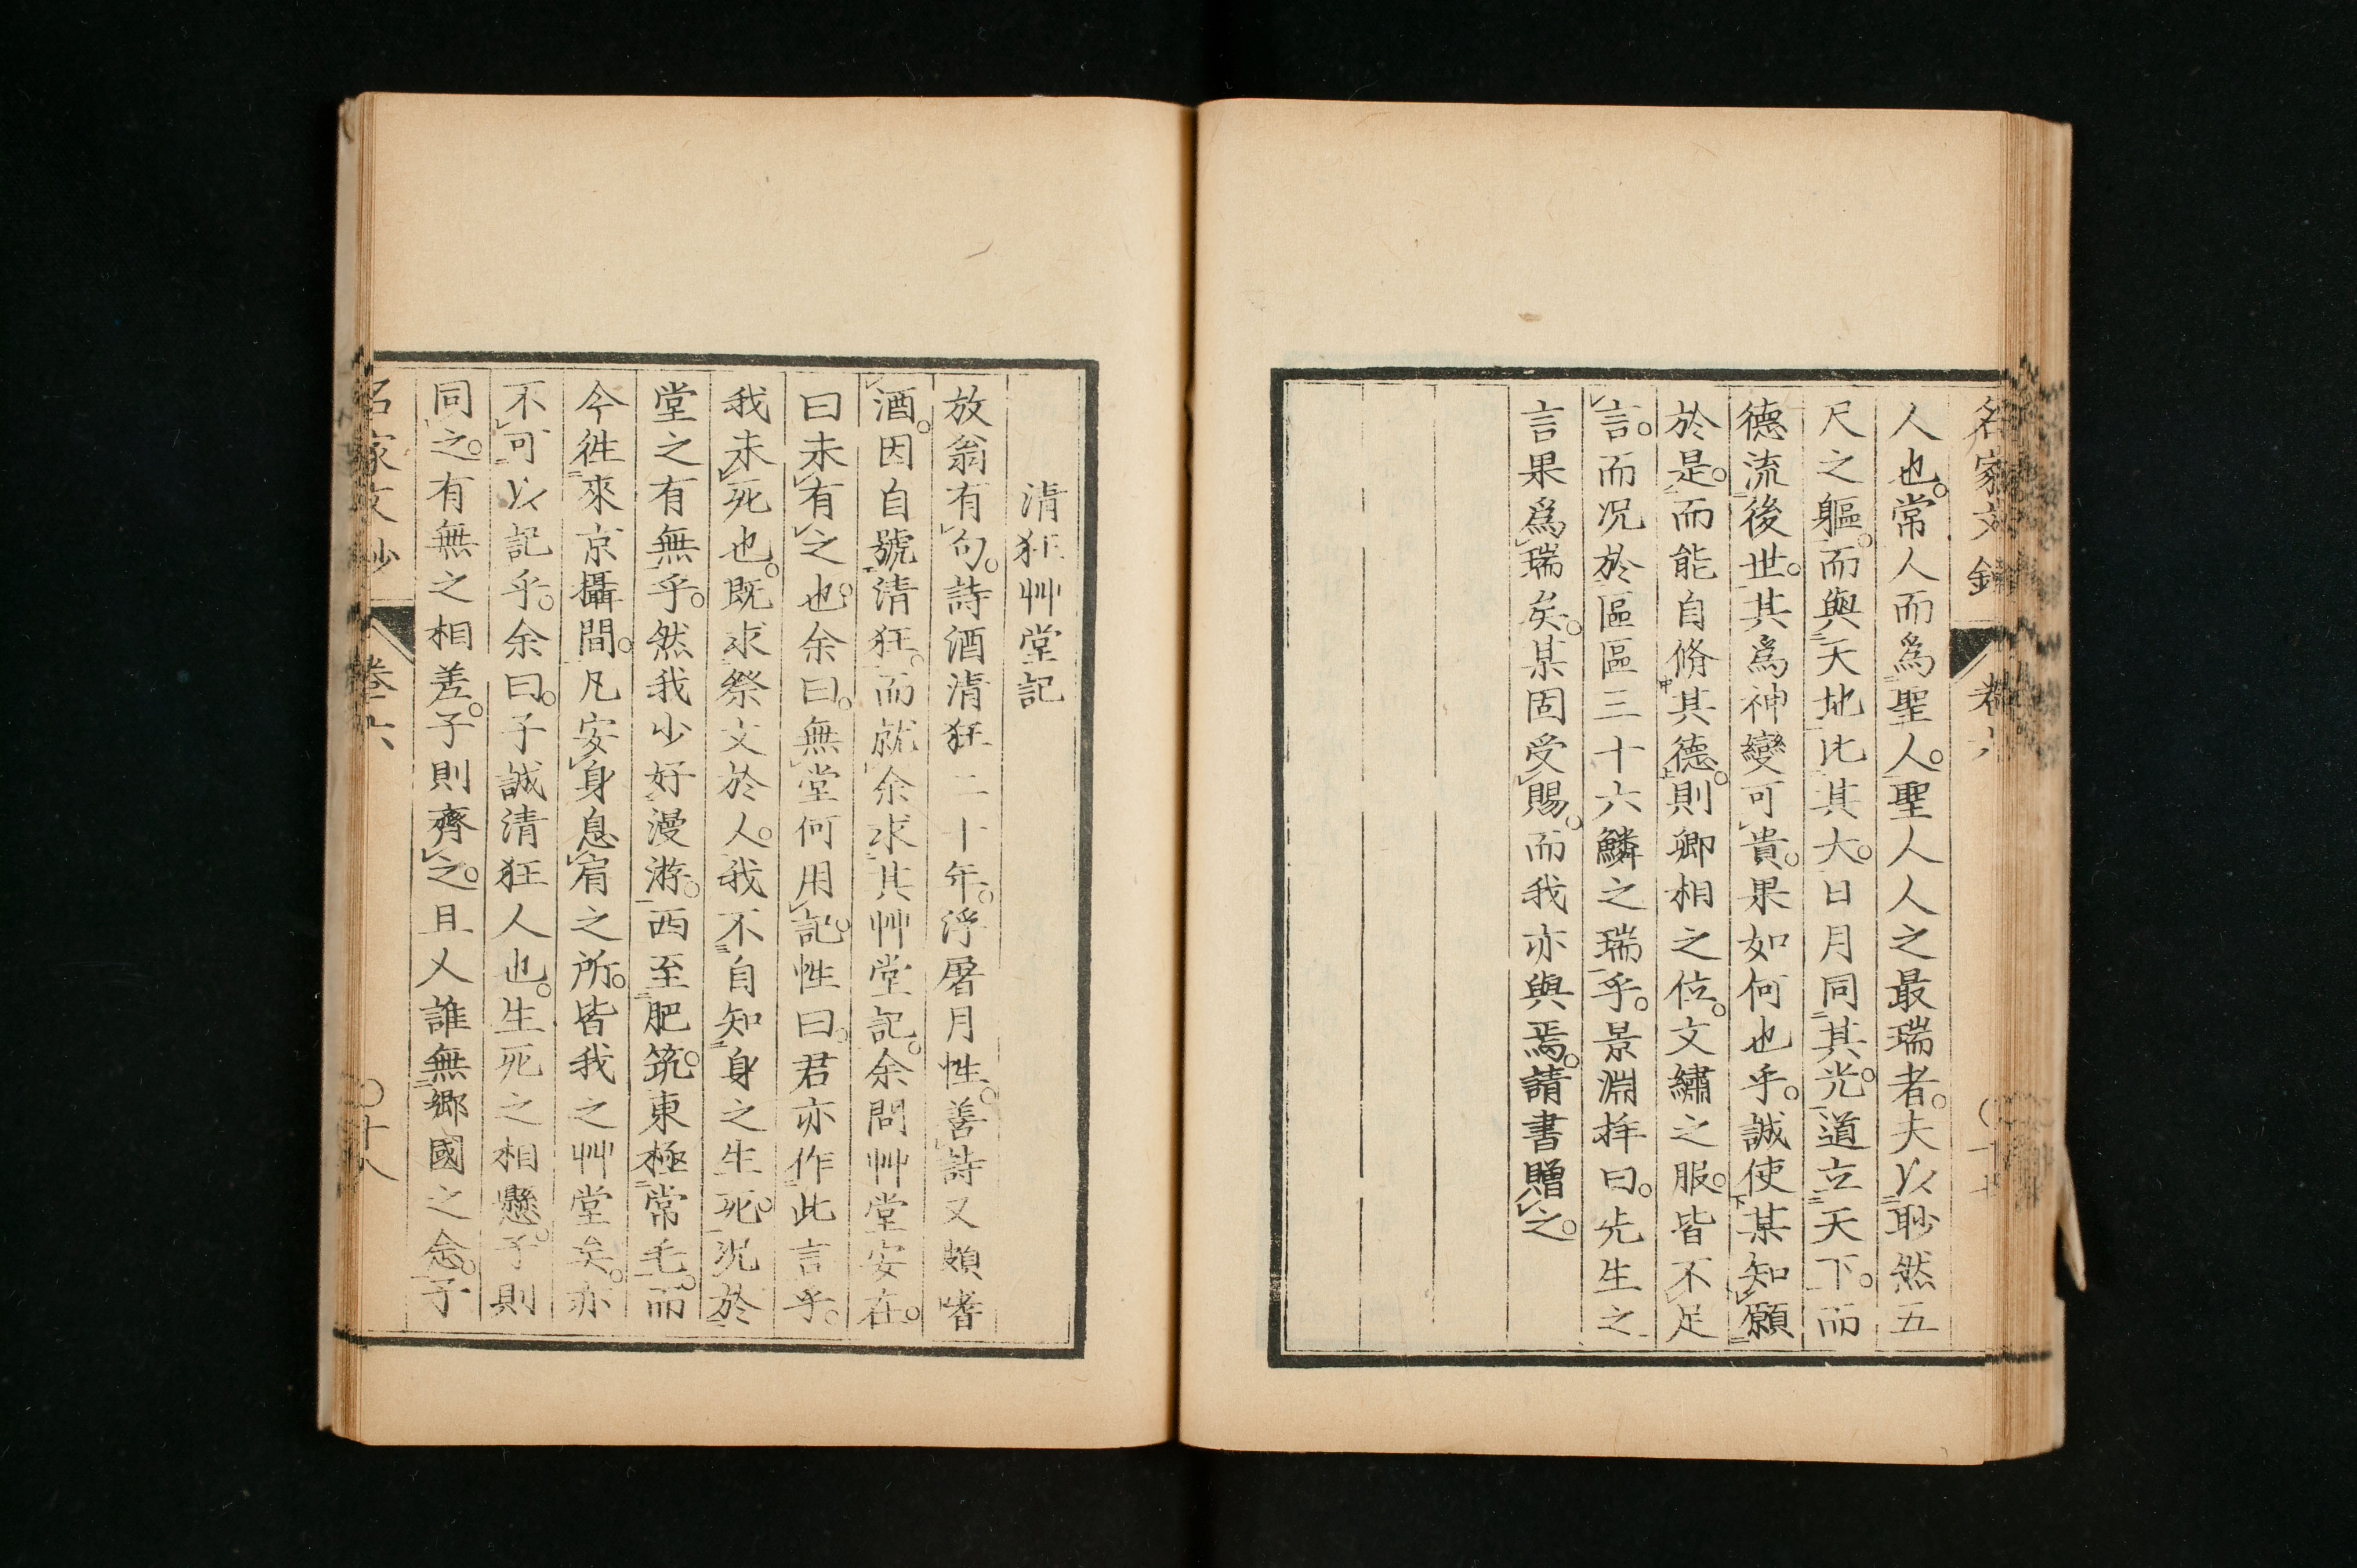 名家文鈔 卷六
人也。常人而爲聖人。聖人人之最瑞者。夫以眇然五
尺之軀。而與天地比其大。日月同其光。道立天下。而
德流後世。其爲神變可貴。果如何也乎。誠使某知願
於是。而能自脩其德。則卿相之位。文繡之服。皆不足
言。而况於區區三十六鱗之瑞乎。景淵拜曰。先生之
言果爲瑞矣。某固受賜。而我亦與焉。請書贈之。
清狂艸堂記
放翁有句。詩酒清狂二十年。浮屠月性。善詩又頗嗜
酒。因自號清狂。而就余求其艸堂記。余問艸堂安在。
曰未有之也。余曰。無堂何用記。性曰。君亦作此言乎。
我未死也。既求祭文於人。我不自知身之生死。况於
堂之有無乎。然我少好漫游。西至肥筑。東極常毛。而
今徃來京攝間。凡安身息肩之所。皆我之艸堂矣。亦
不可以記乎。余曰。子誠清狂人也。生死之相懸。子則
同之。有無之相差。子則齊之。且人誰無鄉國之念。子
名家文鈔 卷六 〇十八